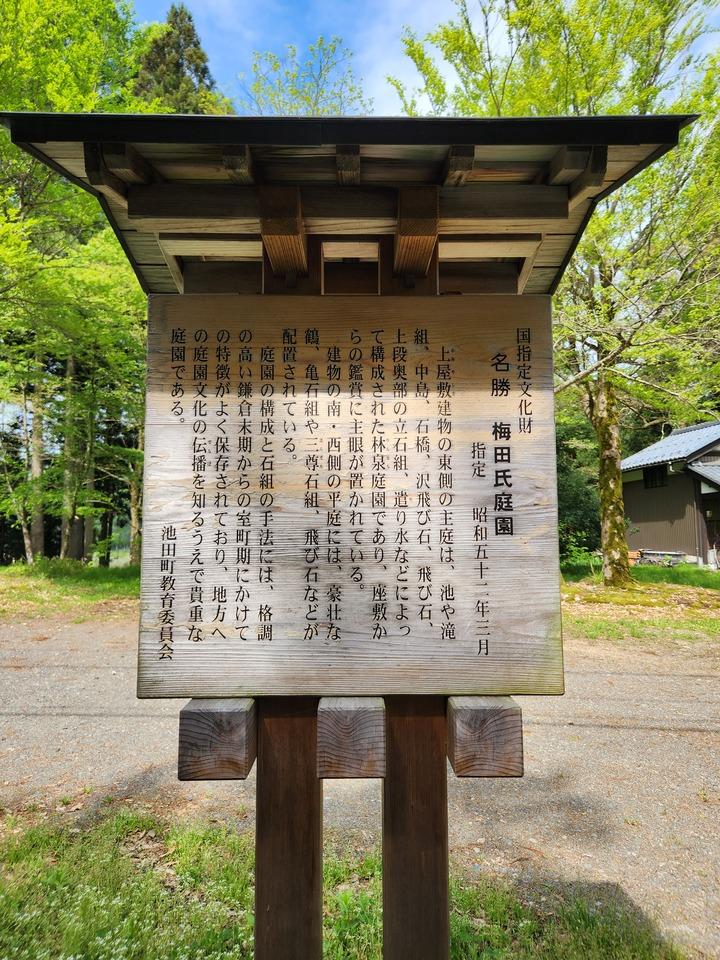 国指定文化財
名勝 梅田氏庭園
指定 昭和五十二年三月
上屋敷建物の東側の主庭は、池や滝
組、中島、石橋、沢飛び石、飛び石、
上段奥部の立石組、遣り水などによっ
て構成された林泉庭園であり、座敷か
らの鑑賞に主眼が置かれている。
建物の南・西側の平庭には、豪壮な
鶴、亀石組や三尊石組、飛び石などが
配置されている。
庭園の構成と石組の手法には、格調
の高い鎌倉末期からの室町期にかけて
の特徴がよく保存されており、地方へ
の庭園文化の伝播を知るうえで貴重な
庭園である。
池田町教育委員会